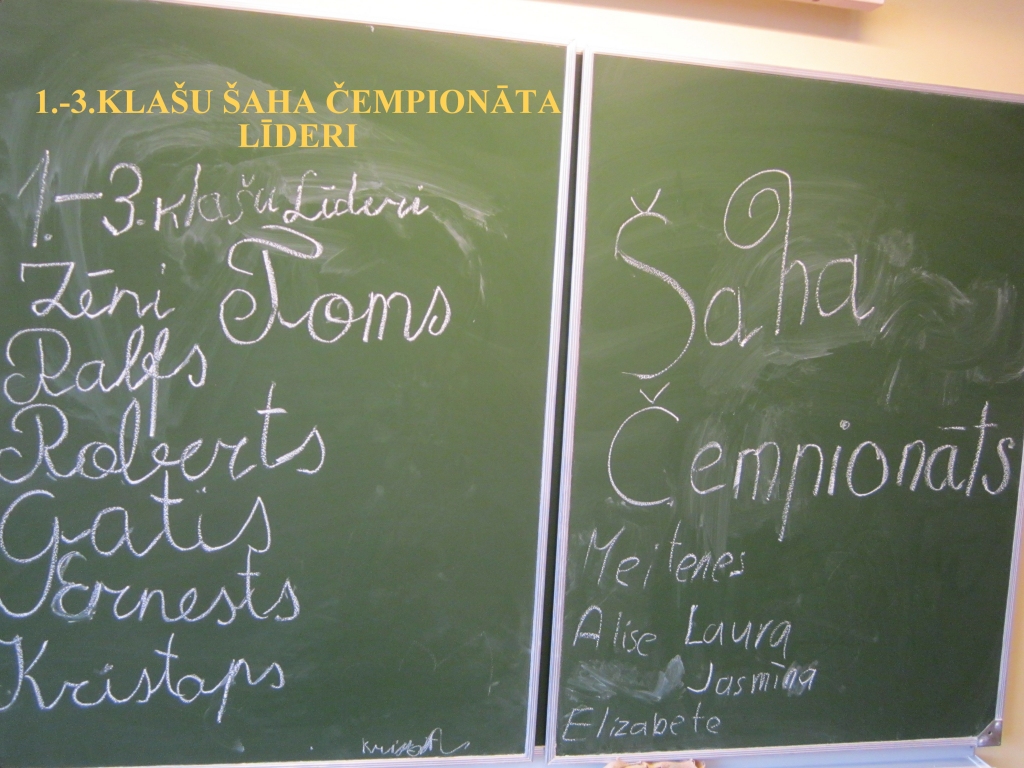 1.-3.KLAŠU ŠAHA ČEMPIONĀTA
LĪDERI
1.-3.klašu Līderi
Zēni Toms
Ralfs
Roberts
Gatis
Ernests
Kristaps
Šaha
Čempionāts
Meitenes
Alise Laura
Jasmīna
Elizabete